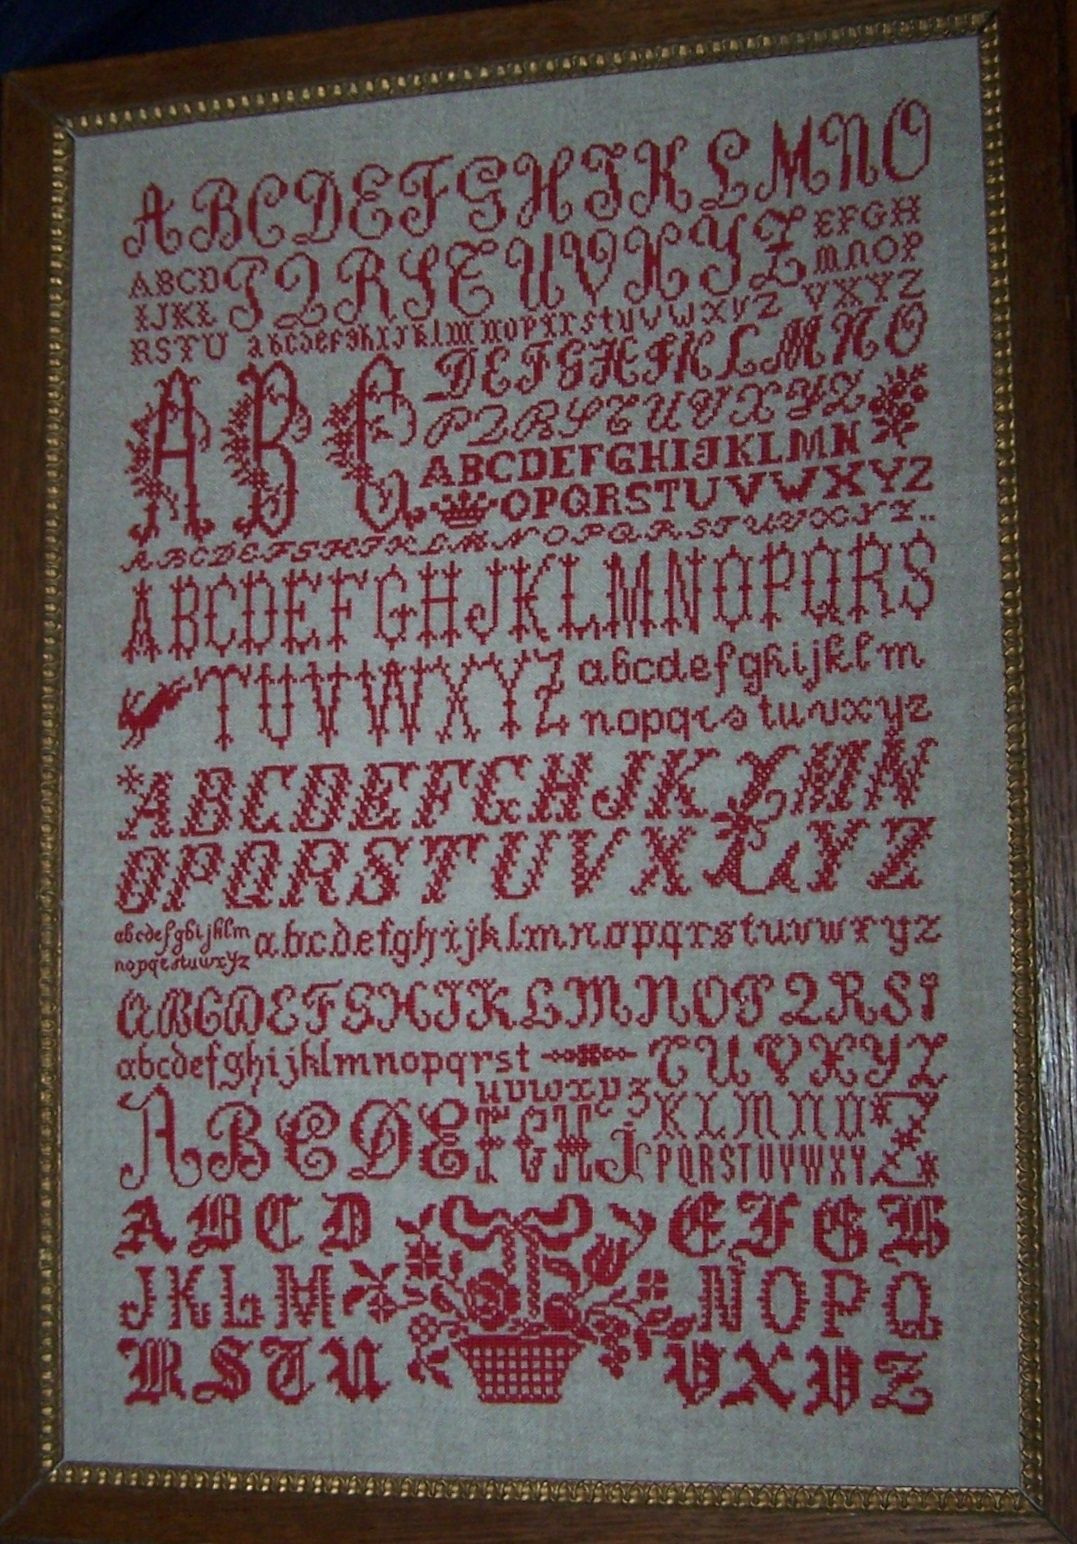 A B C D E F G H I K L M N O
A B C D P Q R S T U V X Y Z E F G H
I J K L M N O P
R S T U a b c d e f g h i j k l m n o p r s t u v w x y z V X Y Z
A B C D E F G H I K L M N O
P Q R S T U V X Y Z
A B C D E F G H I J K L M N
O P Q R S T U V W X Y Z
A B C D E F G H I K L M N O P Q R S T U V X Y Z
A B C D E F G H J K L M N O P Q R S
T U V W X Y Z a b c d e f g h i j k l m
n o p q r s t u v x y z
A B C D E F G H J K L M N
O P Q R S T U V X Y Z
a b c d e f g h i j k l m a b c d e f g h i j k l m n o p q r s t u v w x y z
n o p q r s t u w x y z
A B C D E F G H I K L M N O P Q R S
a b c d e f g h i j k l m n o p q r s t T U V X Y Z
u v w x y z
A B C D E F G H J K L M N O Z
P Q R S T U V W X Y
A B C D E F G H
J K L M N O P Q
R S T U V X Y Z